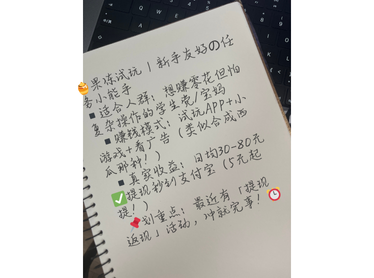 🍮果冻试玩｜新手友好の任
务小能手
▪适合人群：想赚零花但怕
复杂操作的学生党/宝妈
▪赚钱模式：试玩APP+小
游戏+看广告（类似合成西
瓜那种！）
▪真实收益：日均30-80元
✅提现秒到支付宝（5元起
提！）
📌划重点：最近有「提现
返现」活动，冲就完事！⏰